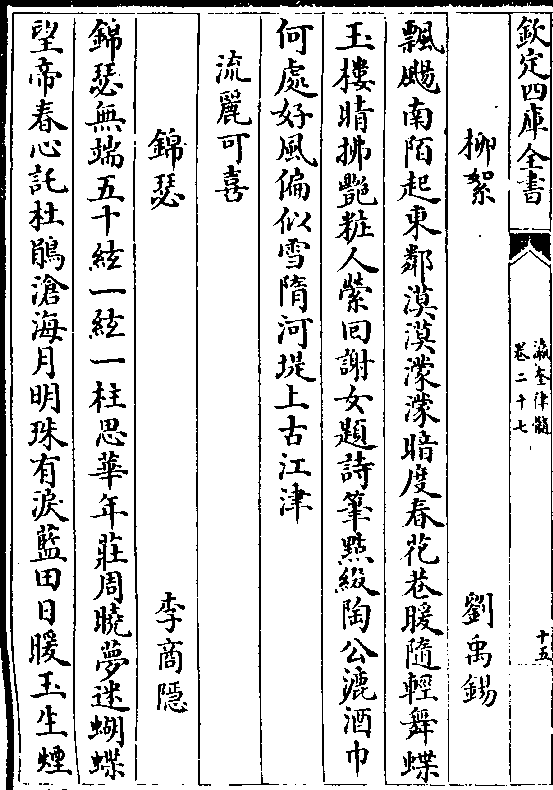 欽定四庫全書
瀛奎律髓
卷二十七
十五
柳絮
劉禹錫
飄颺南陌起東鄰漠漠濛濛暗度春花巷暖隨輕舞蝶
玉樓晴拂艷粧人縈回謝女題詩筆點綴陶公漉酒巾
何處好風偏似雪隋河堤上古江津
流麗可喜
錦瑟
李商隱
錦瑟無端五十絃一絃一柱思華年莊周曉夢迷蝴蝶
望帝春心託杜鵑滄海月明珠有淚藍田日暖玉生煙